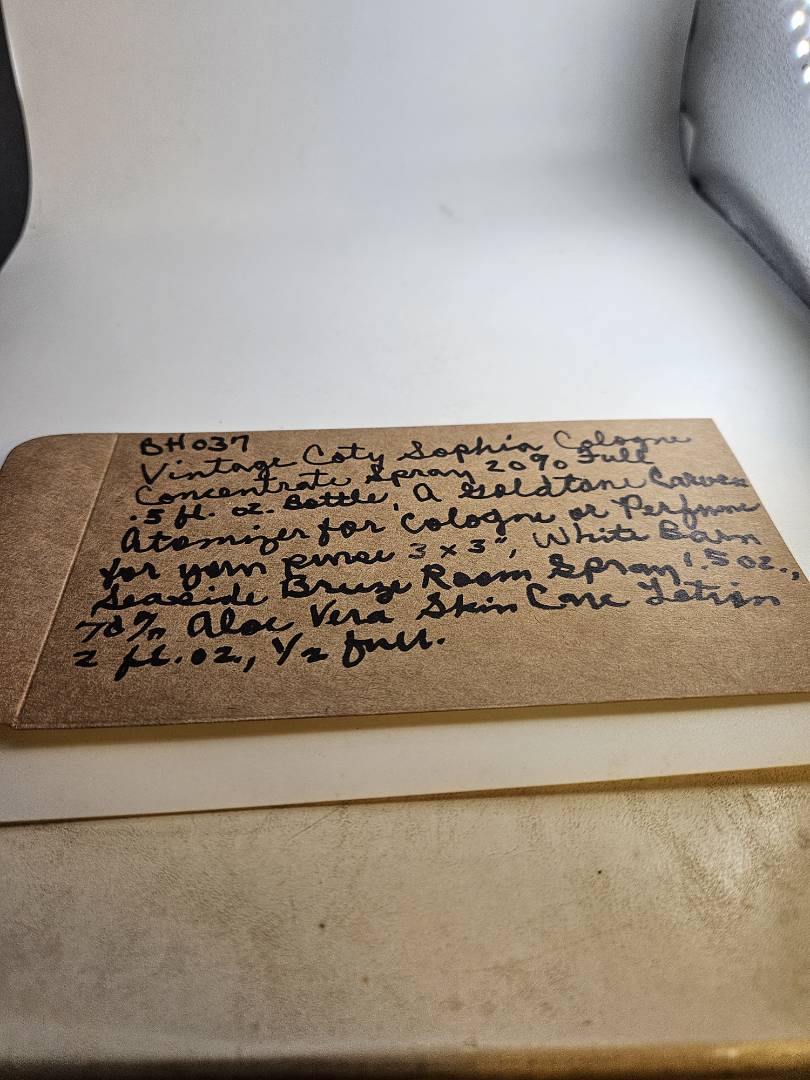 BH037
Vintage Coty Sophia Cologne
Concentrate Spray 20% Full
.5 fl. oz. Bottle, A Goldtone Carved
Atomizer for Cologne or Perfume
for your purse 3 x 3", White Barn
Seaside Breeze Room Spray 1.5 oz.,
70% Aloe Vera Skin Care Lotion
2 fl. oz., 1/2 full.